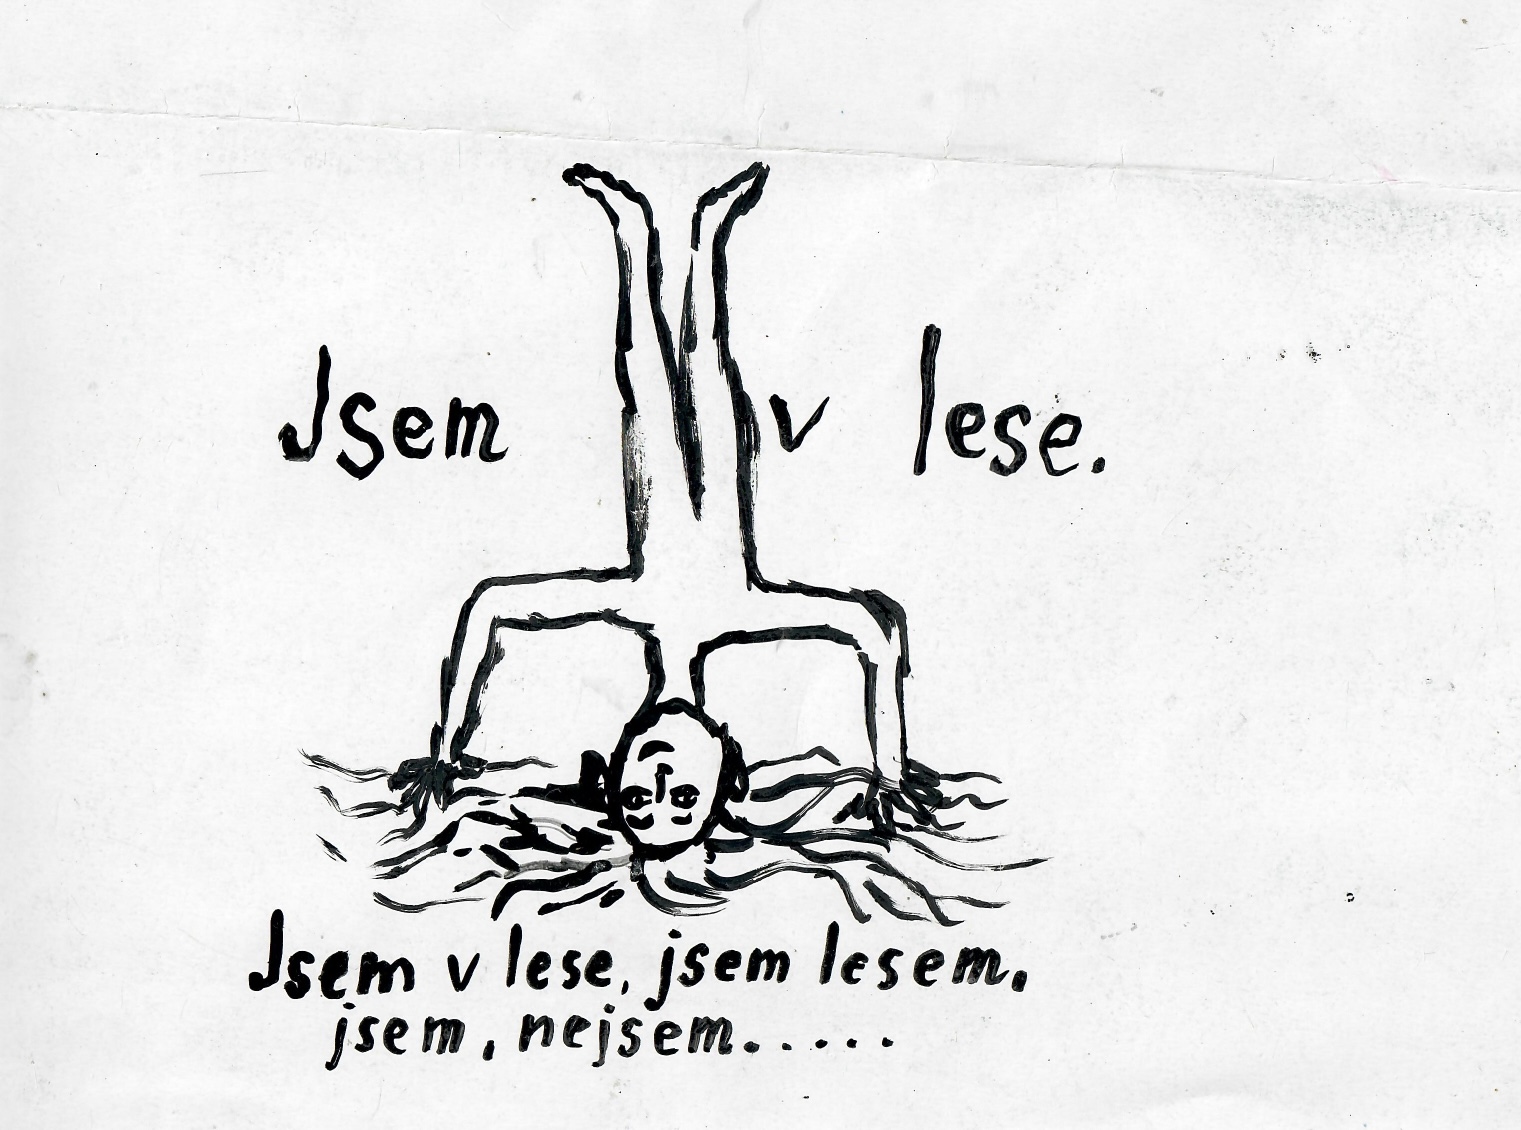 Jsem v lese.
Jsem v lese, jsem lesem.
jsem, nejsem.....